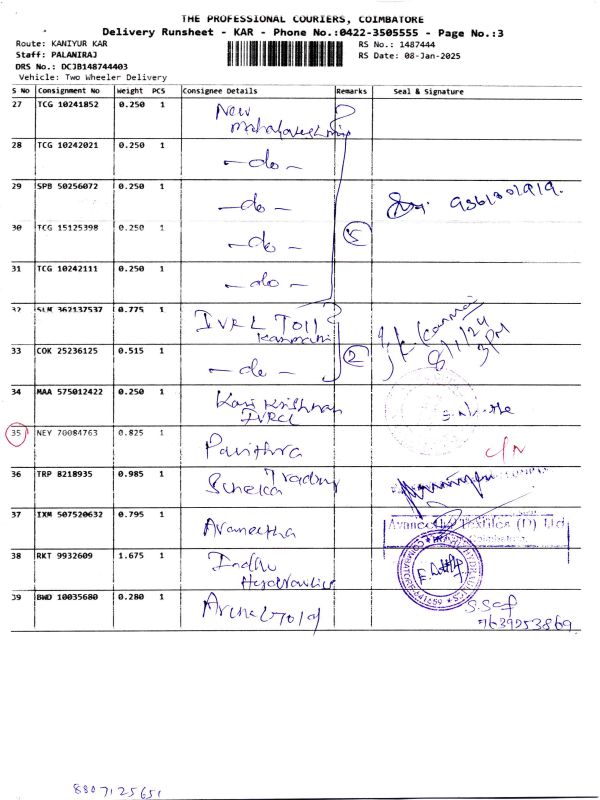 THE PROFESSIONAL COURIERS, COIMBATORE
Delivery Runsheet - KAR - Phone No.:0422-3505555 - Page No.:3
Route: KANIYUR KAR
RS No.: 1487444
Staff: PALANIRAJ
RS Date: 08-Jan-2025
DRS No.: DCJB148744403
Vehicle: Two Wheeler Delivery
S No Consignment No Weight PCS Consignee Details Remarks Seal & Signature
27 TCG 10241852 0.250 1 New
28 TCG 10242021 0.250 1 -do-
29 SPB 50256072 0.250 1 -do-
30 TCG 15125398 0.250 1 -do- 5
31 TCG 10242111 0.250 1 -do-
32 SLM 362137537 0.775 1 IVRL Toll
33 COK 25236125 0.515 1 -do- 2
8/1/24
3PM
34 MAA 575012422 0.250 1 Krishnan
35 NEY 70084763 0.825 1 Pavithra C/N
36 TRP 8218935 0.985 1
37 IXM 507520632 0.795 1 Avaneetha
Avaneetha Textiles (P) Ltd
Coimbatore
38 RKT 9932609 1.675 1 Indhu
39 BWD 10035680 0.280 1
7639253869
8807125651